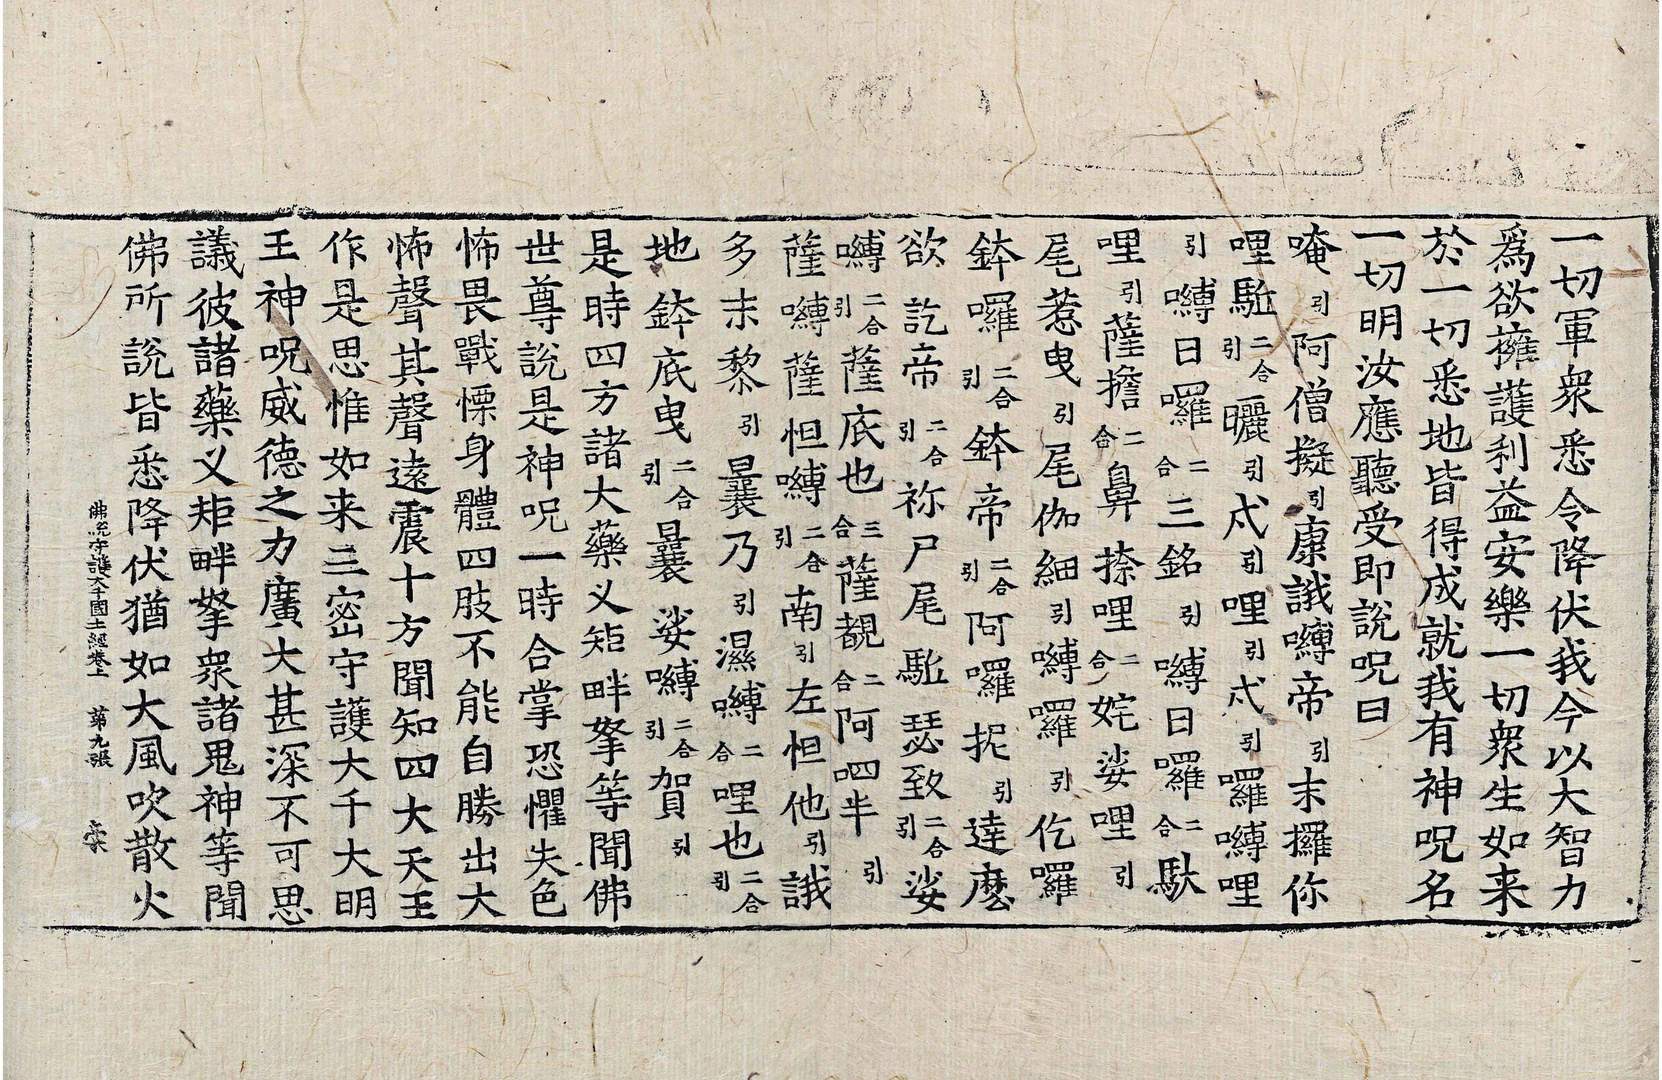 一切軍衆悉令降伏我今以大智力
爲欲擁護利益安樂一切衆生如来
於一切悉地皆得成就我有神呪名
一切明汝應聽受即說呪曰
唵引阿僧擬引康誐嚩帝引末攞你
哩馱二合引曬引忒引哩引忒引囉嚩哩
引嚩日囉二合三銘引嚩日囉二合馱
哩引薩擔二合鼻捺哩二合姹娑哩引
尾惹曳引尾伽細引嚩囉引仡囉
鉢囉二合引鉢帝二合引阿囉抳引達麽
欲訖帝二合引祢尸尾馱瑟致二合引娑
嚩二合引薩底也三合薩覩二合阿呬半引
薩嚩薩怛嚩二合引南引左怛他引誐
多末黎引曩乃引濕嚩二合哩也二合引
地鉢底曳二合引曩娑嚩二合引賀引
是時四方諸大藥义矩畔拏等聞佛
世尊說是神呪一時合掌恐懼失色
怖畏戰慄身體四肢不能自勝出大
怖聲其聲遠震十方聞知四大天王
作是思惟如来三密守護大千大明
王神呪威德之力廣大甚深不可思
議彼諸藥义矩畔拏衆諸鬼神等聞
佛所說皆悉降伏猶如大風吹散火
守護大千國土經卷上 第九張